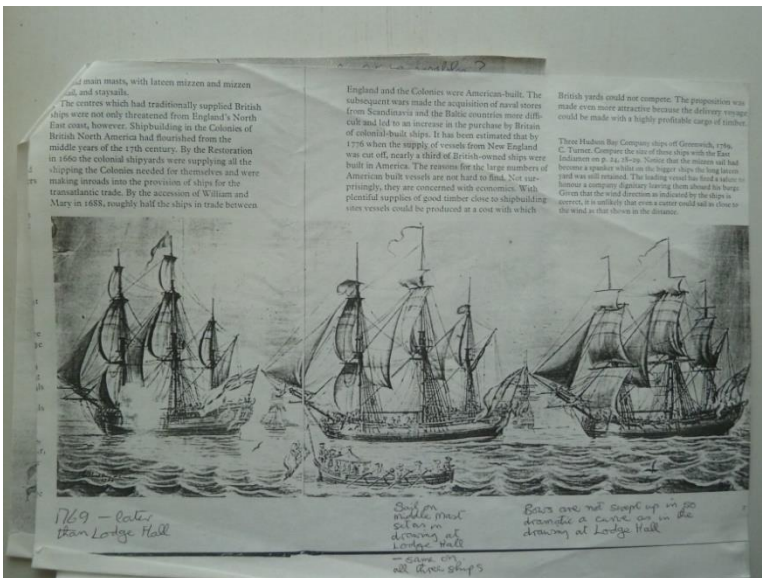 main masts, with lateen mizzen and mizzen
and staysails.
The centres which had traditionally supplied British
ships were not only threatened from England's North
East coast, however. Shipbuilding in the Colonies of
British North America had flourished from the
middle years of the 17th century. By the Restoration
in 1660 the colonial shipyards were supplying all the
shipping the Colonies needed for themselves and were
making inroads into the provision of ships for the
transatlantic trade. By the accession of William and
Mary in 1688, roughly half the ships in trade between
England and the Colonies were American-built. The
subsequent wars made the acquisition of naval stores
from Scandinavia and the Baltic countries more diffi-
cult and led to an increase in the purchase by Britain
of colonial-built ships. It has been estimated that by
1776 when the supply of vessels from New England
was cut off, nearly a third of British-owned ships were
built in America. The reasons for the large numbers of
American built vessels are not hard to find. Not sur-
prisingly, they are concerned with economics. With
plentiful supplies of good timber close to shipbuilding
sites vessels could be produced at a cost with which
British yards could not compete. The proposition was
made even more attractive because the delivery voyage
could be made with a highly profitable cargo of timber.
Three Hudson Bay Company ships off Greenwich, 1769,
C. Turner. Compare the size of these ships with the East
Indiamen on p. 24, 28–29. Notice that the mizzen sail had
become a spanker whilst on the bigger ships the long lateen
yard was still retained. The leading vessel has fired a salute to
honour a company dignitary leaving them aboard his barge.
Given that the wind direction as indicated by the ships is
correct, it is unlikely that even a cutter could sail as close to
the wind as that shown in the distance.
1769 – later
than Lodge Hall
Sail on
middle mast
set as in
drawing at
Lodge Hall
– same on
all three ships
Bows are not swept up in so
dramatic a curve as in the
drawing at Lodge Hall